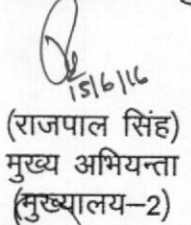 15/6/16
(राजपाल सिंह)
मुख्य अभियन्ता
(मुख्यालय–2)